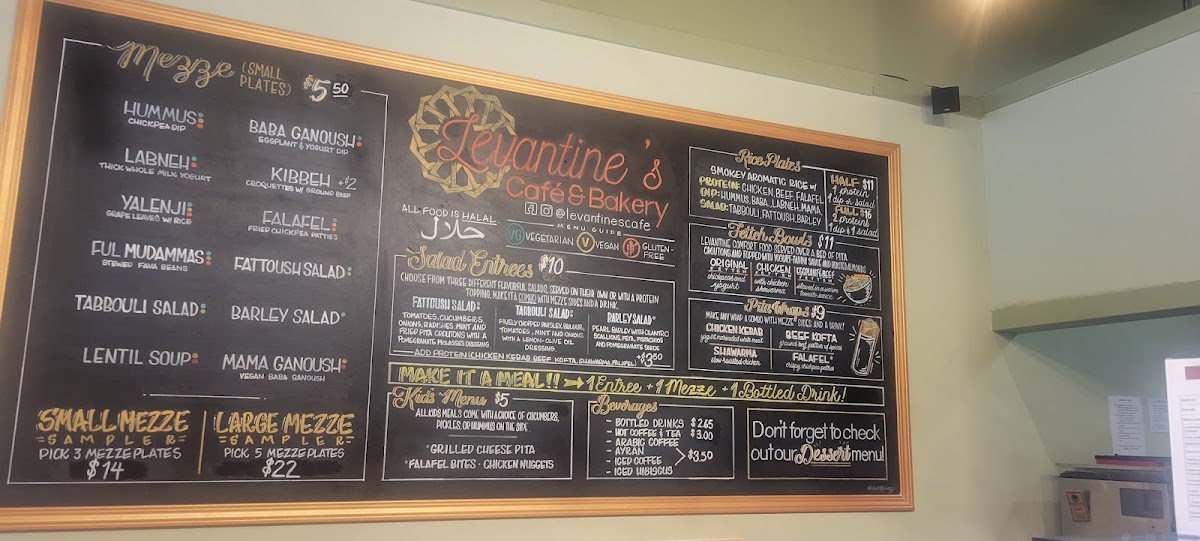 Mezze (SMALL PLATES) $5.50
HUMMUS
CHICKPEA DIP
LABNEH
THICK WHOLE MILK YOGURT
YALENJI
GRAPE LEAVES W/ RICE
FUL MUDAMMAS
STEWED FAVA BEANS
TABBOULI SALAD
LENTIL SOUP
BABA GANOUSH
EGGPLANT & YOGURT DIP
KIBBEH +$2
CROQUETTES W/ GROUND BEEF
FALAFEL
FRIED CHICKPEA PATTIES
FATTOUSH SALAD
BARLEY SALAD
MAMA GANOUSH
VEGAN BABA GANOUSH
SMALL MEZZE
=SAMPLER=
PICK 3 MEZZE PLATES
$14
LARGE MEZZE
=SAMPLER=
PICK 5 MEZZE PLATES
$22
Levantine's
Café & Bakery
@levantinescafe
ALL FOOD IS HALAL
حلال
— MENU GUIDE —
VG VEGETARIAN V VEGAN GF GLUTEN-FREE
Salad Entrees $10
CHOOSE FROM THREE DIFFERENT FLAVORFUL SALADS, SERVED ON THEIR OWN OR WITH A PROTEIN
TOPPING. MAKE IT A COMBO WITH MEZZE SIDES AND A DRINK
FATTOUSH SALAD
TOMATOES, CUCUMBERS,
ONIONS, RADISHES, MINT AND
FRIED PITA CROUTONS WITH A
POMEGRANATE MOLASSES DRESSING
TABOULI SALAD
FINELY CHOPPED PARSLEY, BULGUR,
TOMATOES, MINT AND ONIONS
WITH A LEMON-OLIVE OIL
DRESSING
BARLEY SALAD
PEARL BARLEY WITH CILANTRO
SCALLIONS, FETA, PISTACHIOS
AND POMEGRANATE SEEDS
ADD PROTEIN (CHICKEN KEBAB, BEEF KOFTA, SHAWARMA, FALAFEL) +$3.50
Rice Plates
SMOKEY AROMATIC RICE W/
PROTEIN: CHICKEN, BEEF, FALAFEL
DIP: HUMMUS, BABA, LABNEH, MAMA
SALAD: TABOULI, FATTOUSH, BARLEY
HALF $11
1 protein
1 dip or salad
FULL $16
2 protein
1 dip + 1 salad
Fetteh Bowls $11
LEVANTINE COMFORT FOOD SERVED OVER A BED OF PITA
CROUTONS AND TOPPED WITH YOGURT-TAHINI SAUCE AND ROASTED ALMONDS
ORIGINAL
FETTEH
chickpeas and
yogurt
CHICKEN
FETTEH
with chicken
shawarma
EGGPLANT & BEEF
FETTEH
stewed in a warm
tomato sauce
Pita Wraps $9
MAKE ANY WRAP A COMBO WITH MEZZE SIDES AND A DRINK!
CHICKEN KEBAB
yogurt marinated white meat
BEEF KOFTA
ground beef patties w/ spices
SHAWARMA
slow roasted chicken
FALAFEL
crispy chickpea patties
MAKE IT A MEAL!! → 1 Entree + 1 Mezze + 1 Bottled Drink!
Kid's Menu $5
ALL KIDS MEALS COME WITH A CHOICE OF CUCUMBERS,
PICKLES, OR HUMMUS ON THE SIDE.
*GRILLED CHEESE PITA
*FALAFEL BITES • CHICKEN NUGGETS
Beverages
- BOTTLED DRINKS $2.65
- HOT COFFEE & TEA $3.00
- ARABIC COFFEE
- AYRAN
- ICED COFFEE
- ICED HIBISCUS
> $3.50
Don't forget to check
out our Dessert menu!